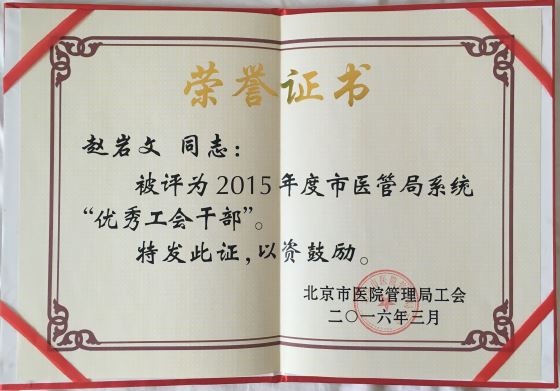 荣誉证书
赵岩文 同志：
被评为2015年度市医管局系统
“优秀工会干部”。
特发此证，以资鼓励。
北京市医院管理局工会
二〇一六年三月